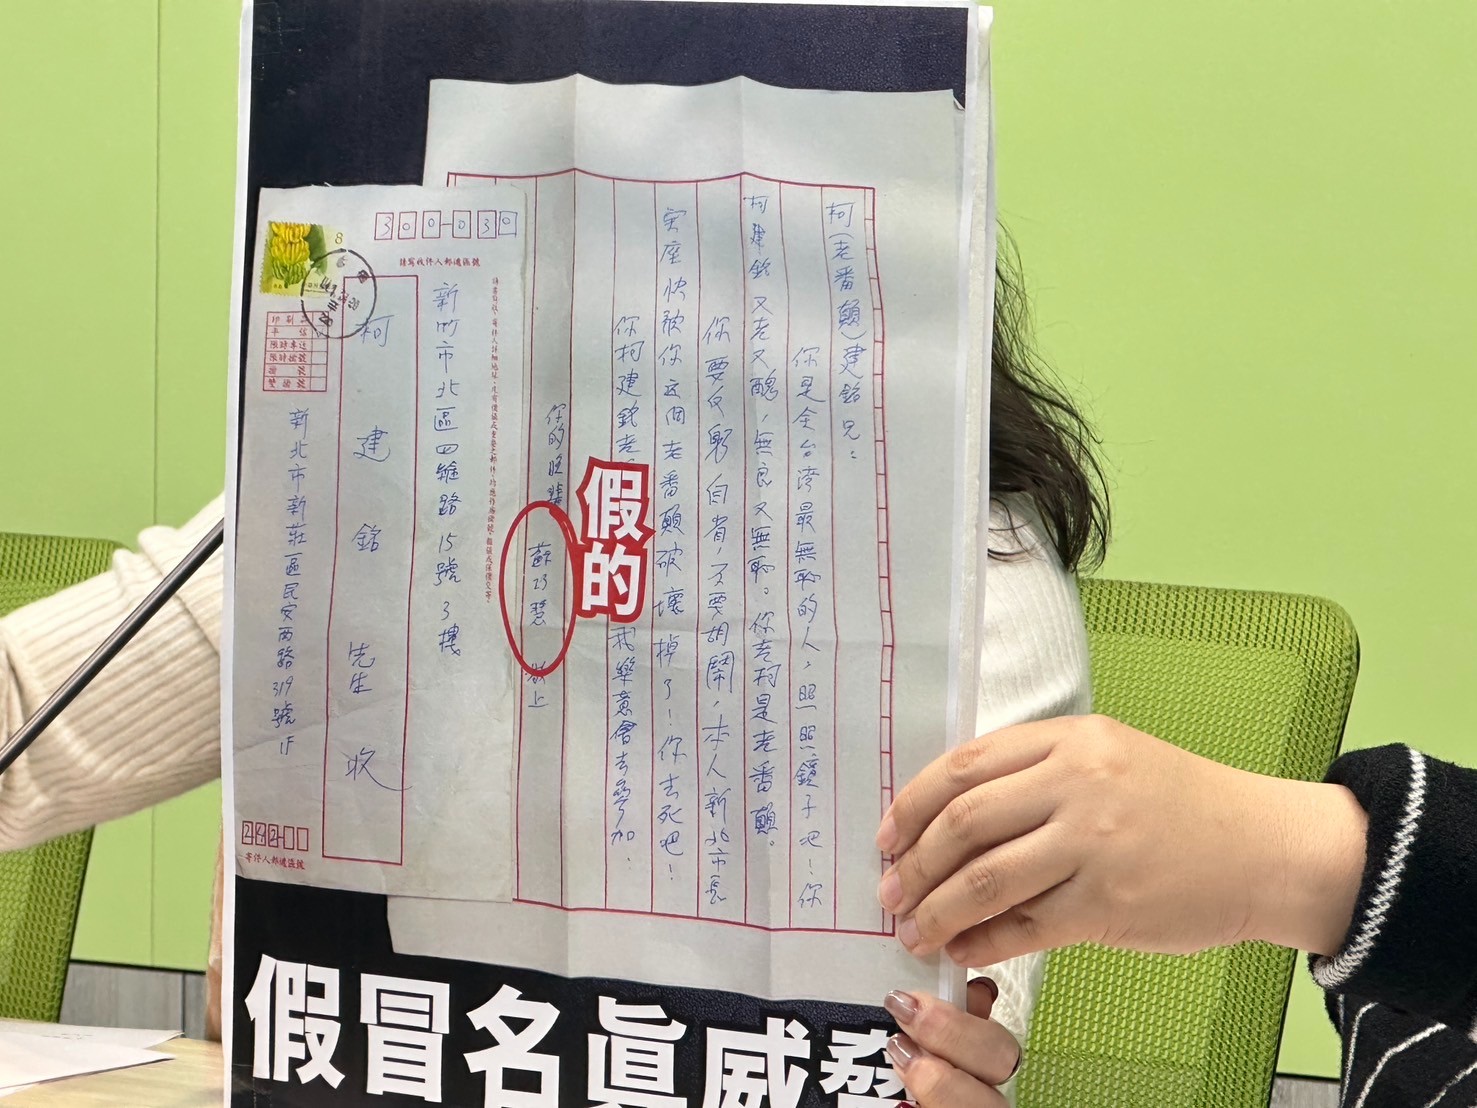 柯(老番顛)建銘兄:
你是全台灣最無恥的人,照照鏡子吧!你
柯建銘又老又醜,無良又無恥。你老柯是老番顛。
你要反躬自省,不要胡鬧,本人新北市長
宝座快被你这個老番顛破壞掉了!你去死吧!
你柯建銘老
我樂意會去參加.
假的
你的晚輩
蘇巧慧 敬上
8
300-030
請寫收件人郵遞區號
新竹市北區四維路15號3樓
柯建銘 先生 收
平信
限時專送
限時掛號
掛號
雙掛號
新北市新莊區民安西路319號1F
242
寄件人郵遞區號
假冒名真威發